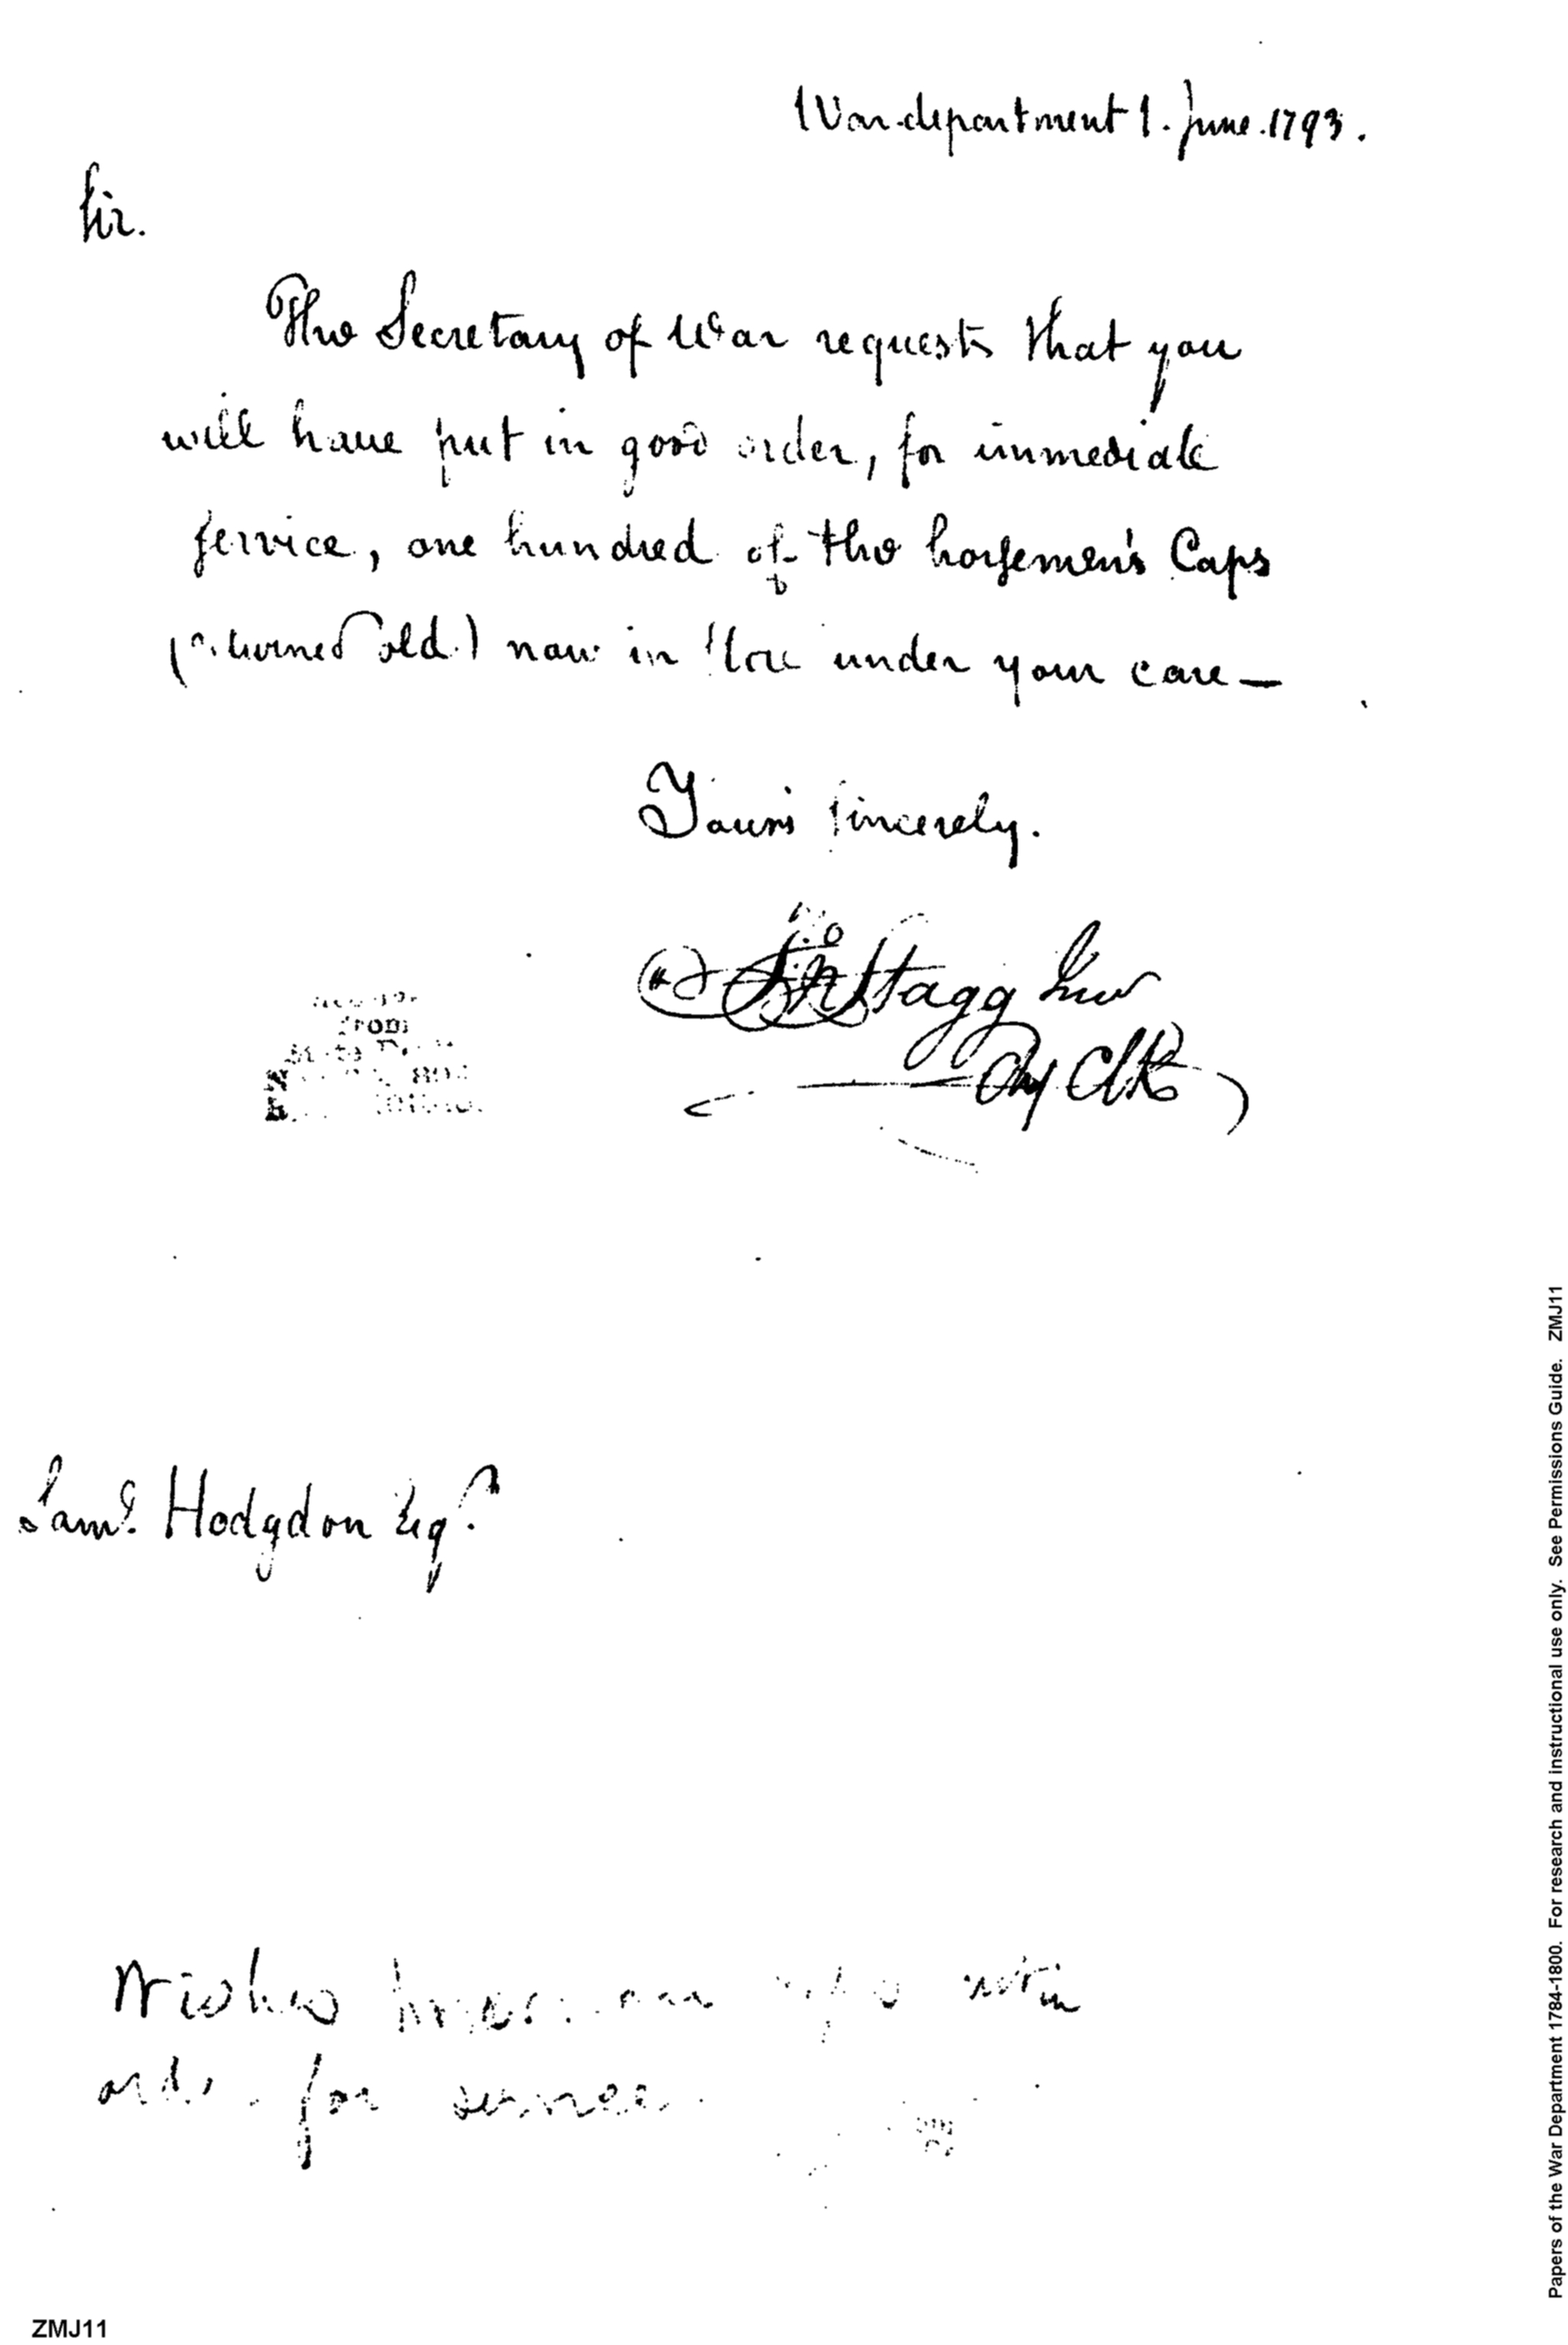 War department 1. June. 1793.
Sir.
The Secretary of War requests that you
will have put in good order, for immediate
service, one hundred of the horsemen's Caps
(returned old.) now in store under your care—
Yours sincerely.
Jno Stagg Junr
Chf Clk
from
Saml. Hodgdon Esqr.
Wishes put in
order for service
Papers of the War Department 1784-1800. For research and instructional use only. See Permissions Guide. ZMJ11
ZMJ11